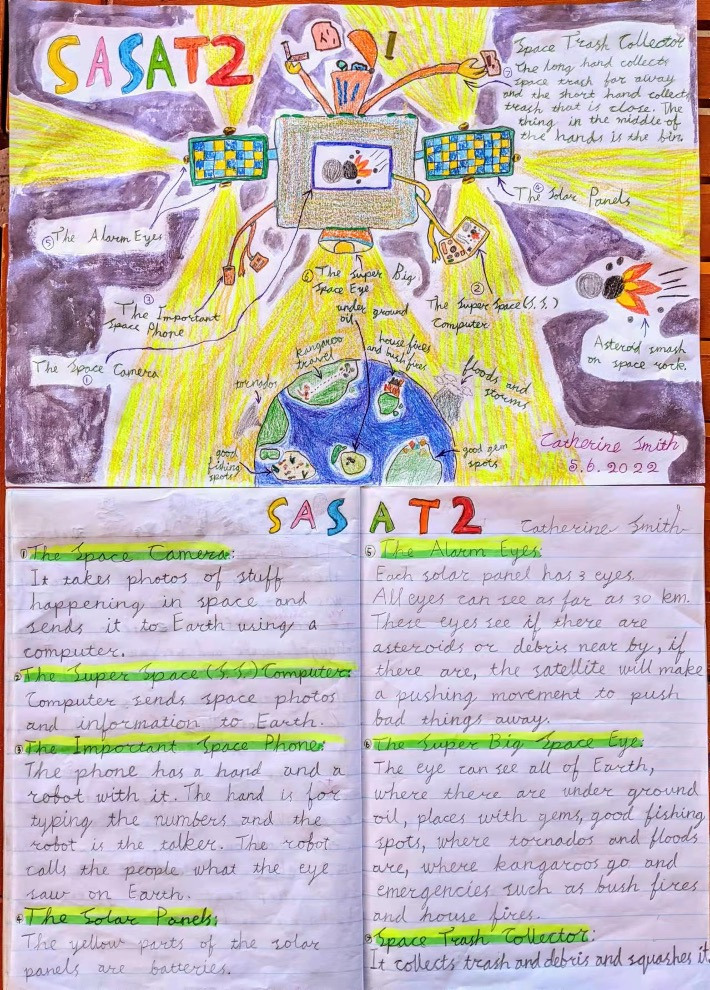 SASAT2
Space Trash Collector
⑦ The long hand collects
space trash far away
and the short hand collects
trash that is close. The
thing in the middle of
the hands is the bin.
④ The Solar Panels
⑤ The Alarm Eyes
③
The Important
Space Phone
The Space Camera
①
⑥ The Super Big
Space Eye
②
The Super Space (S.S.)
Computer
Asteroid smash
on space rock
under ground
oil
kangaroo
travel
house fires
and bush fires
floods and
storms
tornados
good
fishing
spots
good gem
spots
Catherine Smith
5.6.2022
SASAT2
Catherine Smith
① The Space Camera:
It takes photos of stuff
happening in space and
sends it to Earth using a
computer.
② The Super Space (S.S.) Computer:
Computer sends space photos
and information to Earth.
③ The Important Space Phone:
The phone has a hand and a
robot with it. The hand is for
typing the numbers and the
robot is the talker. The robot
calls the people what the eye
saw on Earth.
④ The Solar Panels:
The yellow parts of the solar
panels are batteries.
⑤ The Alarm Eyes:
Each solar panel has 3 eyes.
All eyes can see as far as 30 km.
These eyes see if there are
asteroids or debris near by, if
there are, the satellite will make
a pushing movement to push
bad things away.
⑥ The Super Big Space Eye:
The eye can see all of Earth,
where there are under ground
oil, places with gems, good fishing
spots, where tornados and floods
are, where kangaroos go and
emergencies such as bush fires
and house fires.
⑦ Space Trash Collector:
It collects trash and debris and squashes it.